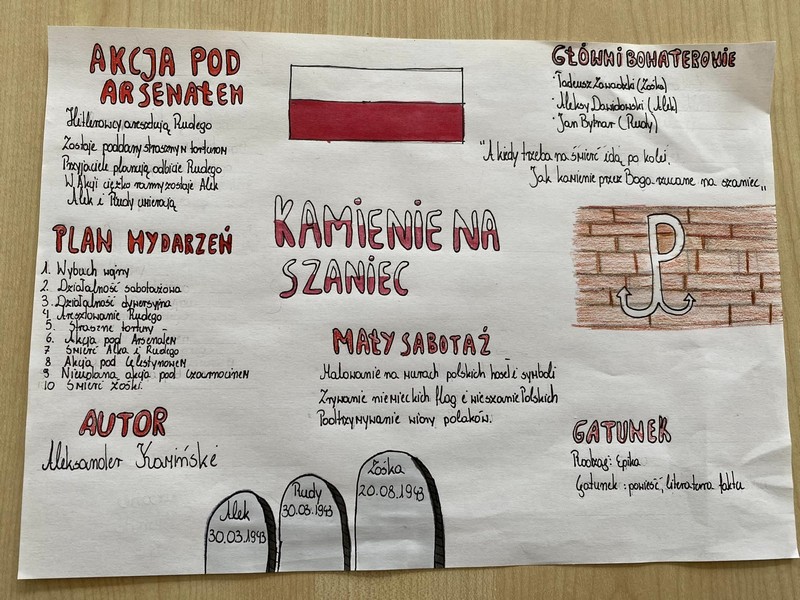 AKCJA POD
ARSENAŁEM
Hitlerowcy aresztują Rudego
Zostaje poddany strasznym torturom
Przyjaciele planują odbicie Rudego
W Akcji ciężko ranny zostaje Alek
Alek i Rudy umierają
PLAN WYDARZEŃ
1. Wybuch wojny
2. Działalność sabotażowa
3. Działalność dywersyjna
4 Aresztowanie Rudego
5. Straszne tortury
6. Akcja pod Arsenałem
7 Śmierć Alka i Rudego
8 Akcja pod Celestynowem
9 Nieudana akcja pod Czarnocinem
10 Śmierć Zośki.
AUTOR
Aleksander Kamiński
KAMIENIE NA
SZANIEC
MAŁY SABOTAŻ
Malowanie na murach polskich haseł i symboli
Zrywanie niemieckich flag i wieszanie Polskich
Podtrzymywanie wiary polaków.
Alek
30.03.1943
Rudy
30.03.1943
Zośka
20.08.1943
GŁÓWNI BOHATEROWIE
·Tadeusz Zawadzki (Zośka)
·Aleksy Dawidowski (Alek)
·Jan Bytnar (Rudy)
"A kiedy trzeba na śmierć idą po kolei,
Jak kamienie przez Boga rzucane na szaniec„
P
GATUNEK
Rodzaj: Epika
Gatunek: powieść, literatura faktu